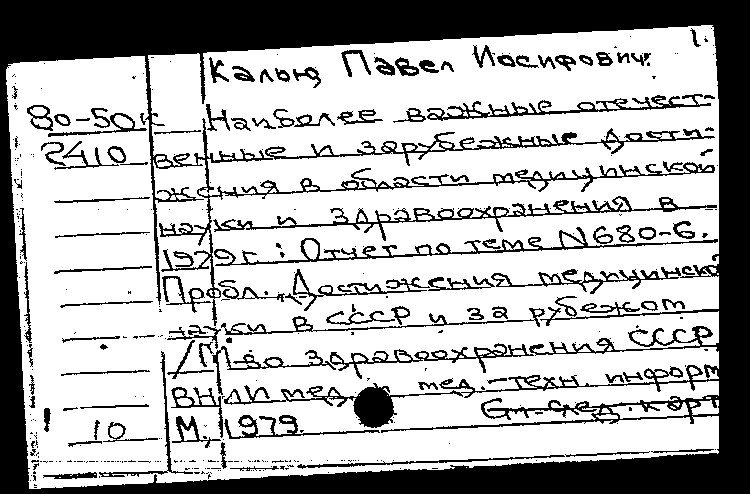 1.
Калью Павел Иосифович.
80-50к Наиболее важные отечест-
2410 венные и зарубежные дости-
жения в области медицинской
науки и здравоохранения в
1979г.: Отчет по теме N680-6.
Пробл. "Достижения медицинской
науки в СССР и за рубежом
/М-во здравоохранения СССР,
ВНИИ мед. и мед.-техн. информ
10 М, 1979 См. след. карт